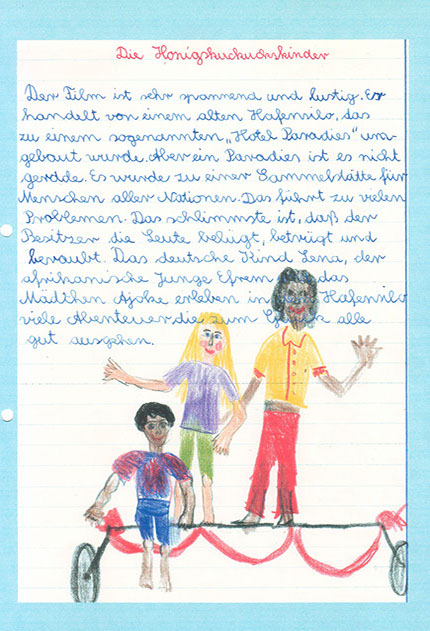 Die Honigkuckuckskinder
Der Film ist sehr spannend und lustig. Er
handelt von einem alten Hafensilo, das
zu einem sogenannten „Hotel Paradies" um-
gebaut wurde. Aber ein Paradies ist es nicht
gerade. Es wurde zu einer Sammelstätte für
Menschen aller Nationen. Das führt zu vielen
Problemen. Das schlimmste ist, daß der
Besitzer die Leute belügt, betrügt und
beraubt. Das deutsche Kind Lena, der
afrikanische Junge Efrem das
Mädchen Ajoke erleben in Hafensilo
viele Abenteuer die zum alle
gut ausgehen.